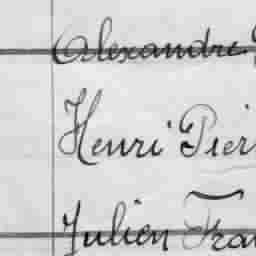 Alexandre
Henri Pier
Julien Fran